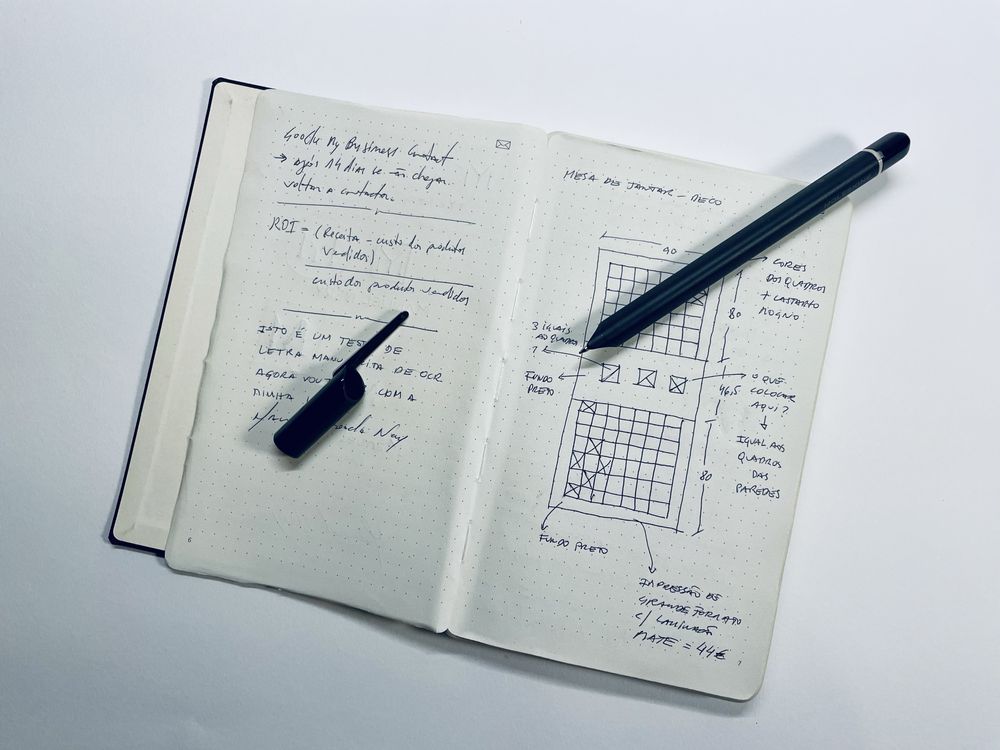 Google My Business Contact
→ após 14 dias se não chegar
voltar a contactar.
ROI = (Receita - custo dos produtos
vendidos)
custo dos produtos vendidos
ISTO É UM TESTE DE
LETRA MANUSCRITA DE OCR
AGORA VOU COM A
MINHA
6
MESA DE JANTAR - DECO
90
CORES
DOS QUADROS
+ CASTANHO
MOGNO
80
3 IGUAIS
AO QUADRO
1
FUNDO
PRETO
46,5
O QUE
COLOCAR
AQUI?
IGUAL AOS
QUADROS
DAS
PAREDES
80
FUNDO PRETO
IMPRESSÃO DE
GRANDE FORMATO
c/ LAMINAÇÃO
MATE = 44€
7